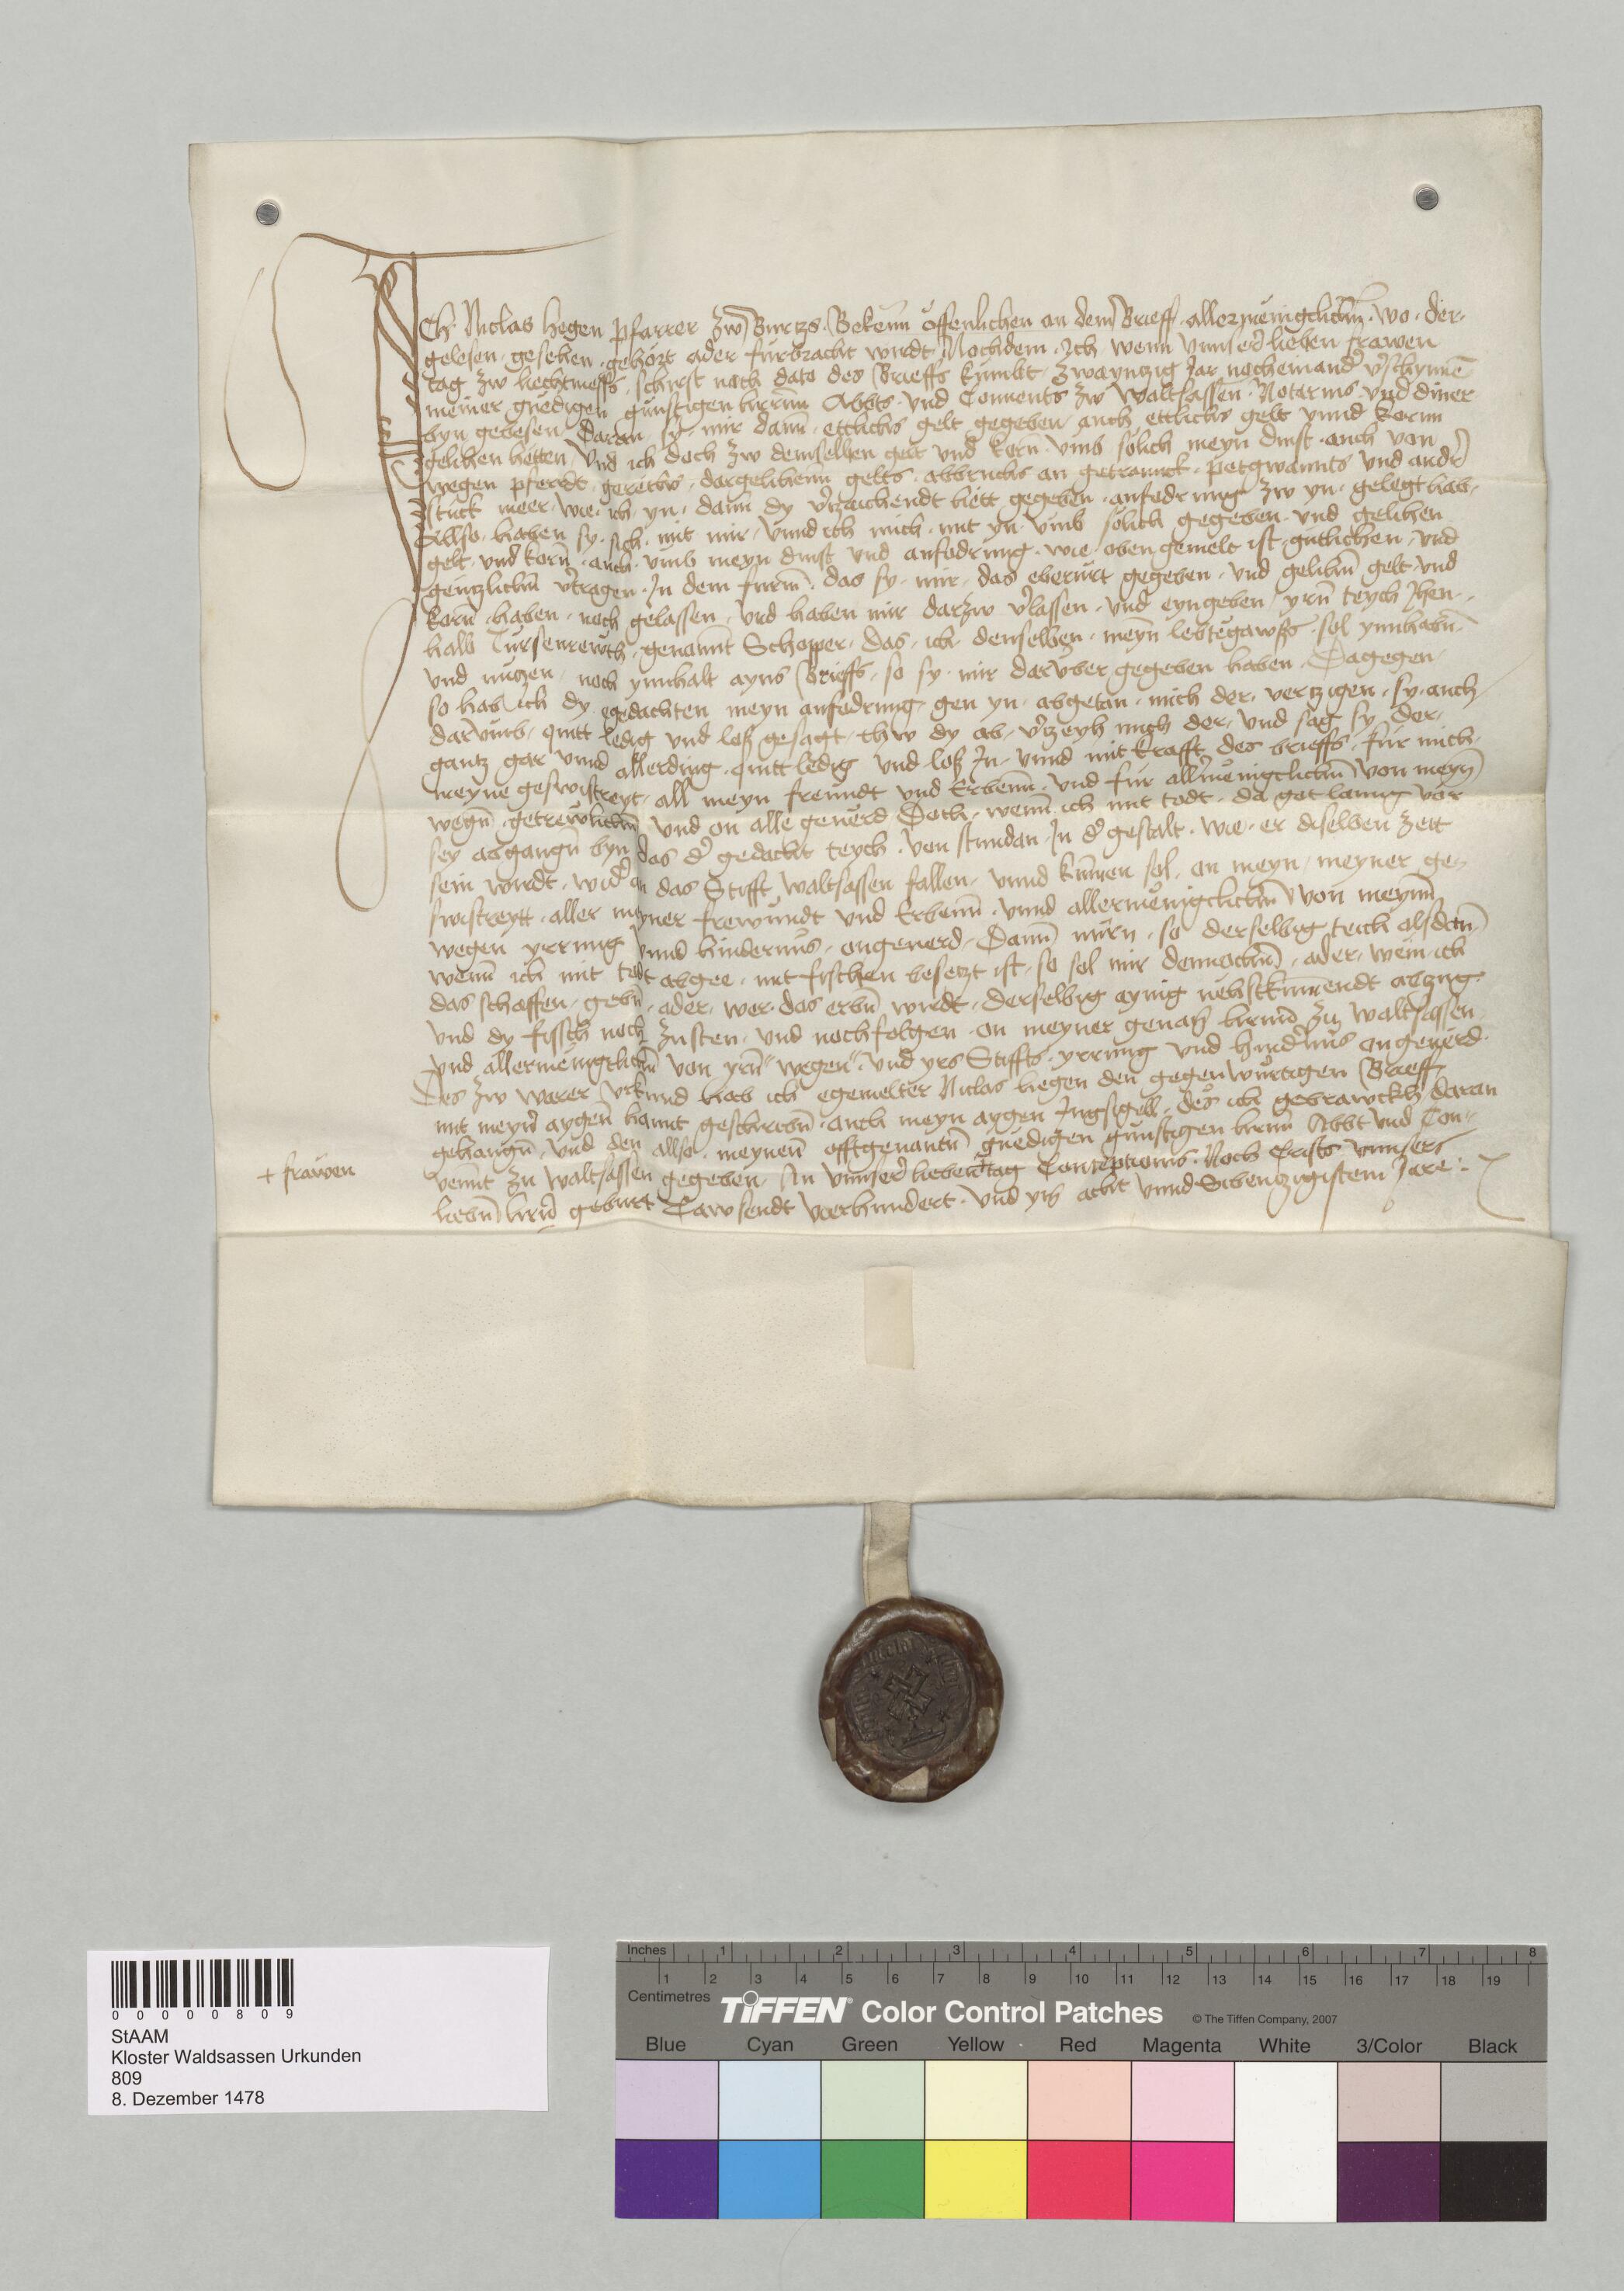 Ich Niclas Hegen pfarrer zw Burtzs Bekenn offenlichen an dem Brieff allermeniglichen wo der
gelesen gesehen gehört ader fürbracht wirdt Nochdem Ich wenn unnser lieben frawen
tag zw liechtmesss schirst nach dato des Brieffs kümbt zwayntzig Jar nocheinander verschynen
meiner gnedigen günstigen herren Abbts und Convents zw Waltsassen Notarius und diner
byn gebesen Daran sy mir dann ettlichs gelt gegeben auch ettlichs gelt unnd korn
gelihen hetten Und ich doch zw demselben gelt und korn umb sölich meyn dinst auch von
wegen pferdt geretts dargelihenn gelts abbruchs an getrannck petgwannts und ander
stück meer wie ich yn dann dy verzaichendt hett gegeben anfodrung zw yn gelegt hab
Allso haben sy sich mit mir unnd ich mich mit yn umb sölich gegeben und gelihen
gelt und korn auch umb meyn dinst und anfodrung wie oben gemelt ist gütlichen und
gentzlichen vertragen In dem furm das sy mir das eberürt gegeben und gelihen gelt und
korn haben noch gelassen und haben mir darzw verlassen und eyngeben yren teych Jhen
halb Türsenrewth genannt Schopper das ich denselben meyn lebtegawss sol ynnhaben
und nutzen noch ynnhalt ayns Brieffs so sy mir darüber gegeben haben Dagegen
so hab ich dy egedachten meyn anfodrung gen yn abgetan mich der vertzigen sy auch
darumb quitt ledig und loß gesagt thw dy ab vertzeyh mich der und sag sy der
gantz gar unnd allerding quitt ledig und loß In unnd mit krafft des brieffs für mich
meyne geswistreyt all meyn freundt und Erbenn und für allermeniglichen von meyn
wegen getrewlichen und on alle geverd Doch wenn ich mit todt da got lanng vor
sey abgangen byn das der gedacht teych von stundan In der gestalt wie er diselben zeit
sein wirdt wider an das Stifft waltsassen fallen unnd kumen sol on meyn meyner ge
swistreytt aller meyner frewndt und Erbenn unnd allermeniglichen von meynen
wegen yrrung unnd hindernus ongeverd Dann mirn so derselbig teich alsdann
wenn ich mit todt abgee mit fischen besetzt ist so sol mir dennochen ader wem ich
das schaffen geben ader wer das erben wirdt derselbig aynig nehstkumendt abzug
und dy fissch noch zusten und nochfolgen on meyner genan herren zu waltsassen
und allermeniglichen von yren wegen und yrs Stiffts yrrung und hindernus ongeverd
Des zw warer Urkund hab ich egemelter Niclas hegen den gegenwürtigen Brieff
mit meyner aygen hannt geschriben auch meyn aygen Ingsigell des ich gebrawckh daran
gehangen und den allso meynen offtgenanten gnedigen günstigen herren Abbt und Con
vennt zu waltsassen gegeben An unnser lieben + tag Conceptionis Noch Crists unnsers
+ frawen
lieben herren geburt Tawsendt vierhundert und ym acht unnd Sibentzigistem Jare
00000809
StAAM
Kloster Waldsassen Urkunden
809
8. Dezember 1478
Inches 1 2 3 4 5 6 7 8
1 2 3 4 5 6 7 8 9 10 11 12 13 14 15 16 17 18 19
Centimetres
TIFFEN® Color Control Patches © The Tiffen Company, 2007
Blue Cyan Green Yellow Red Magenta White 3/Color Black